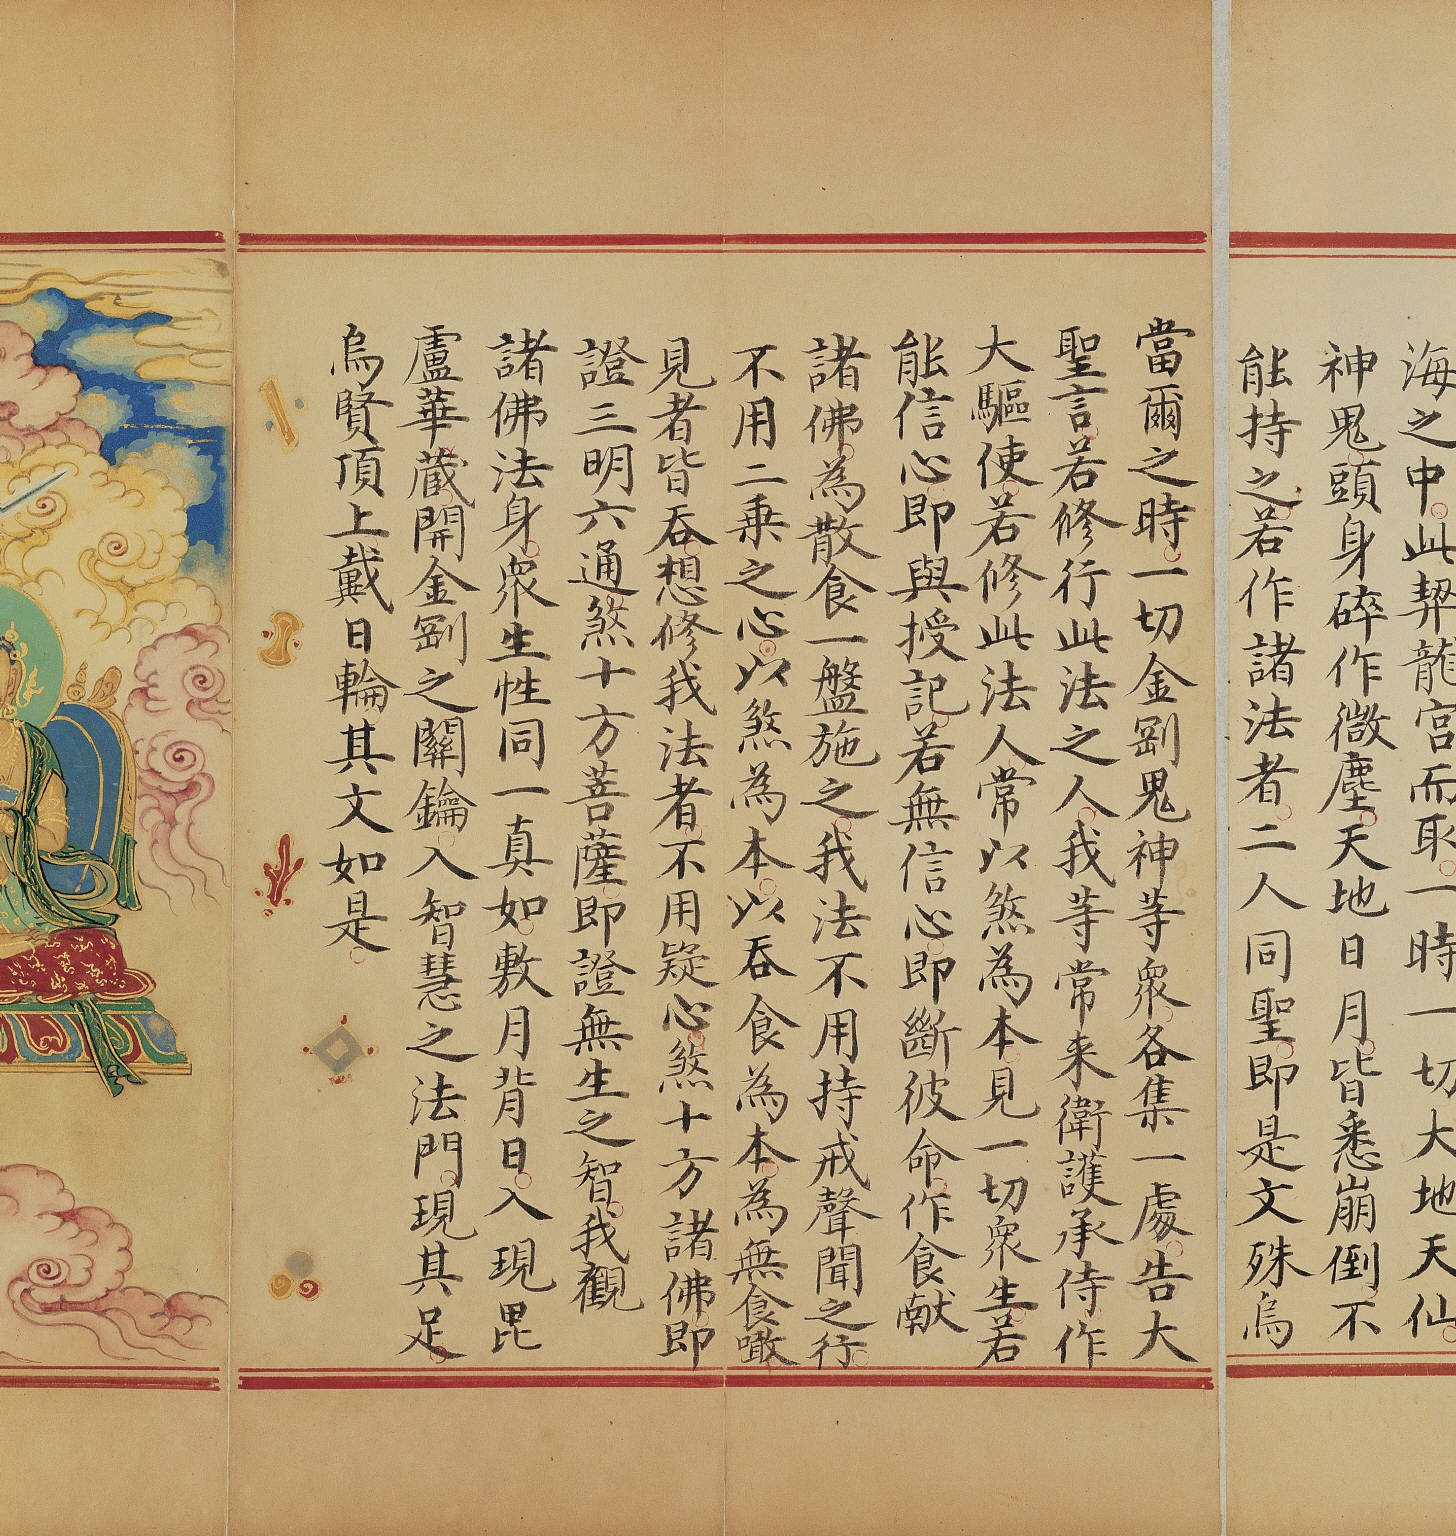 海之中此契龍宮而取一時一切大地天仙
神鬼頭身碎作微塵天地日月皆悉崩倒不
能持之若作諸法者二人同聖即是文殊烏
當爾之時一切金剛鬼神等衆各集一處告大
聖言若修行此法之人我等常来衛護承侍作
大驅使若修此法人常以煞為本見一切衆生若
能信心即與授記若無信心即斷彼命作食献
諸佛為散食一盤施之我法不用持戒聲聞之行
不用二乗之心以煞為本以吞食為本為無食噉
見者皆吞想修我法者不用疑心煞十方諸佛即
證三明六通煞十方菩薩即證無生之智我觀
諸佛法身衆生性同一真如敷月背日入現毘
盧華蔵開金剛之關鑰入智慧之法門現其足
烏賢頂上戴日輪其文如是